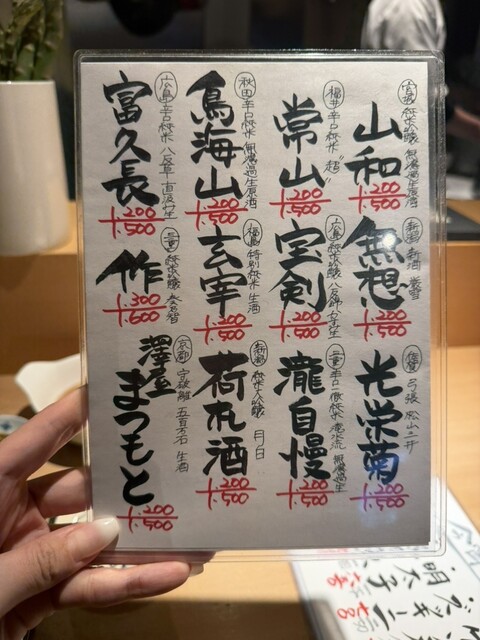 宮城 純米吟醸 無濾過生原酒
山和
200
500
福井 辛口純米 "超"
常山
200
500
秋田 辛口純米 無濾過生原酒
鳥海山
200
500
広島 辛口純米 八反草 直汲み生
富久長
200
500
新潟 新酒 厳雪
無想
200
500
広島 純米吟醸 八反錦 生
宝剣
200
500
福島 特別純米 生酒
玄宰
200
500
三重 純米吟醸
作
300
600
佐賀 弓張 松山三井
光栄菊
200
500
三重 辛口 純米 滝流 無濾過生
瀧自慢
200
500
新潟 純米大吟醸 月日
荷札酒
200
500
京都 守破離 五百万石 生酒
澤屋まつもと
200
500
明太子
ズッキーニ